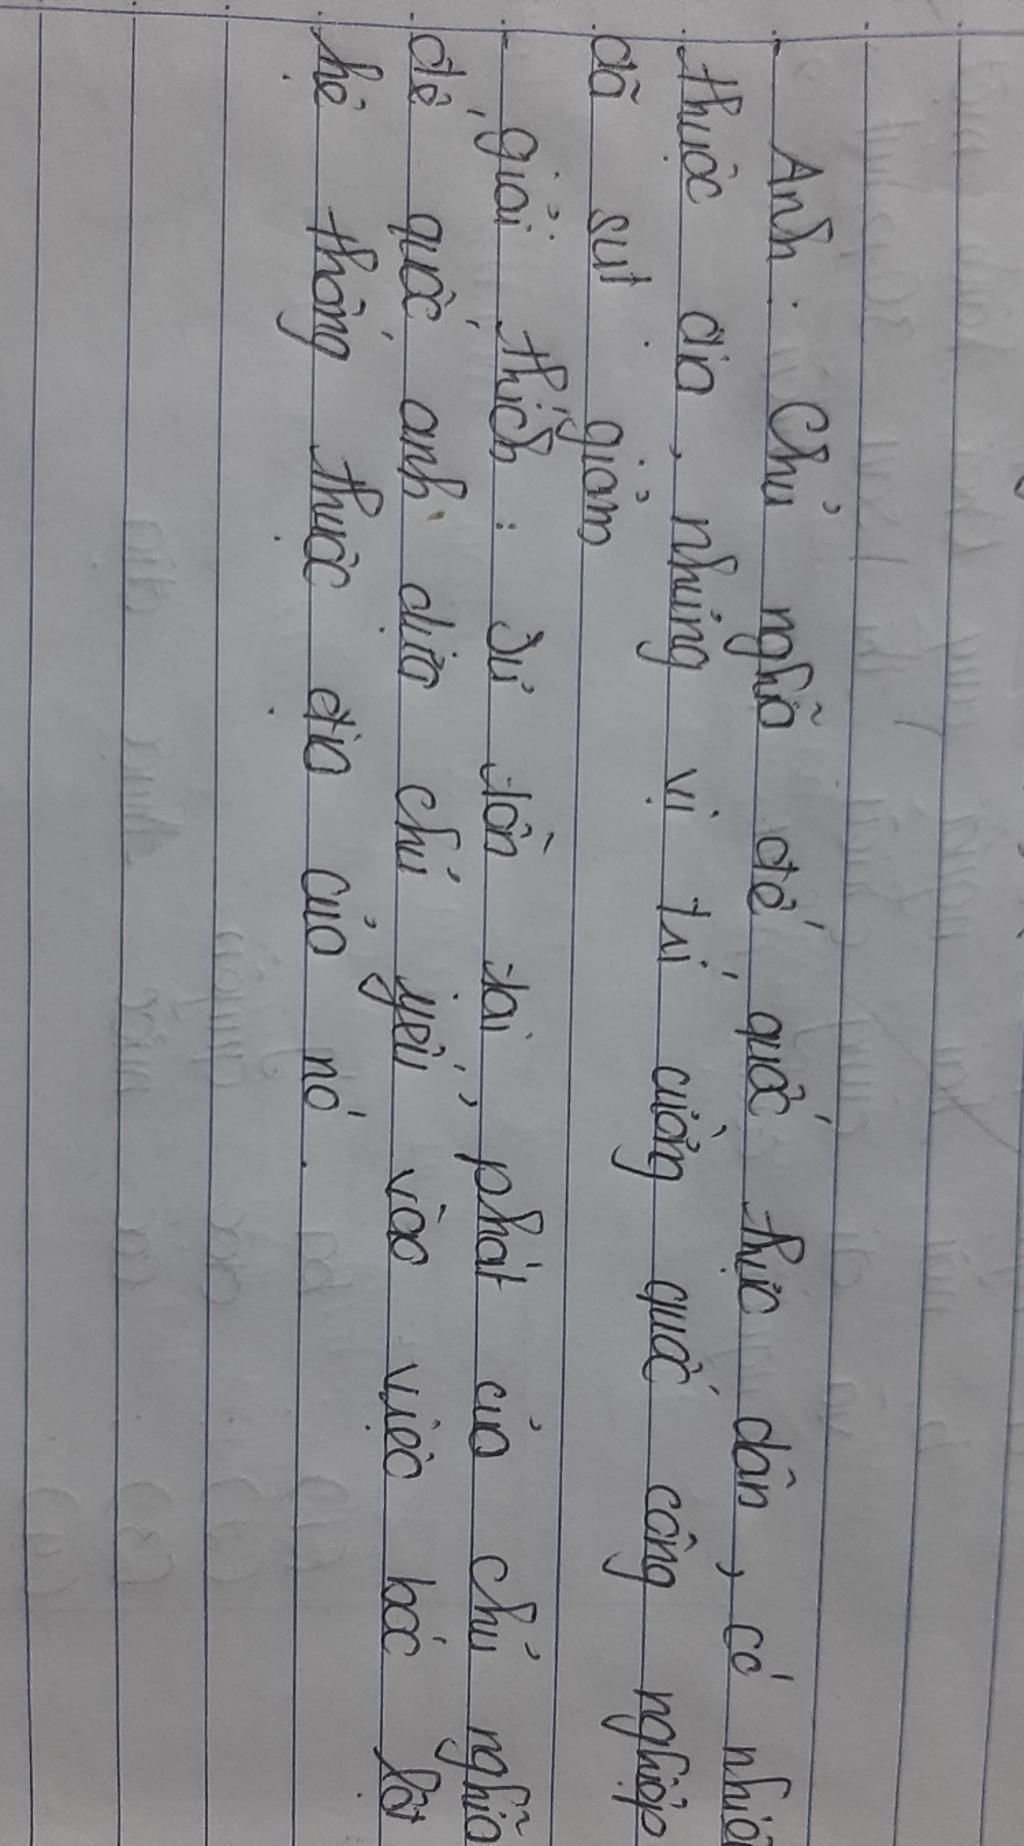 - Anh: Chủ nghĩa đế quốc thực dân, có nhiều
thuộc địa, nhưng vị trí cường quốc công nghiệp
đã sụt giảm
- giải thích: Sự tồn tại, phát của chủ nghĩa
đế quốc anh dựa chủ yếu vào việc bóc lột
hệ thống thuộc địa của nó.